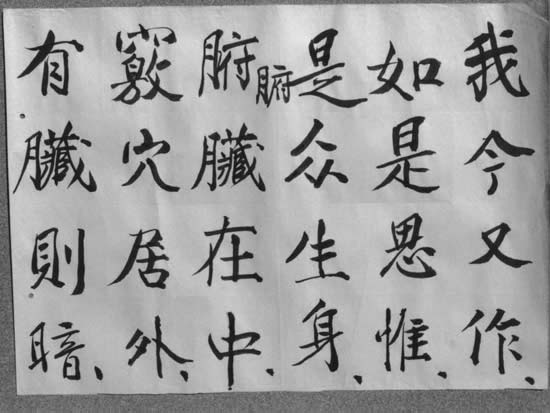 我今又作、
如是思惟、
是众生身、
腑腑臟在中、
竅穴居外、
有臟則暗、